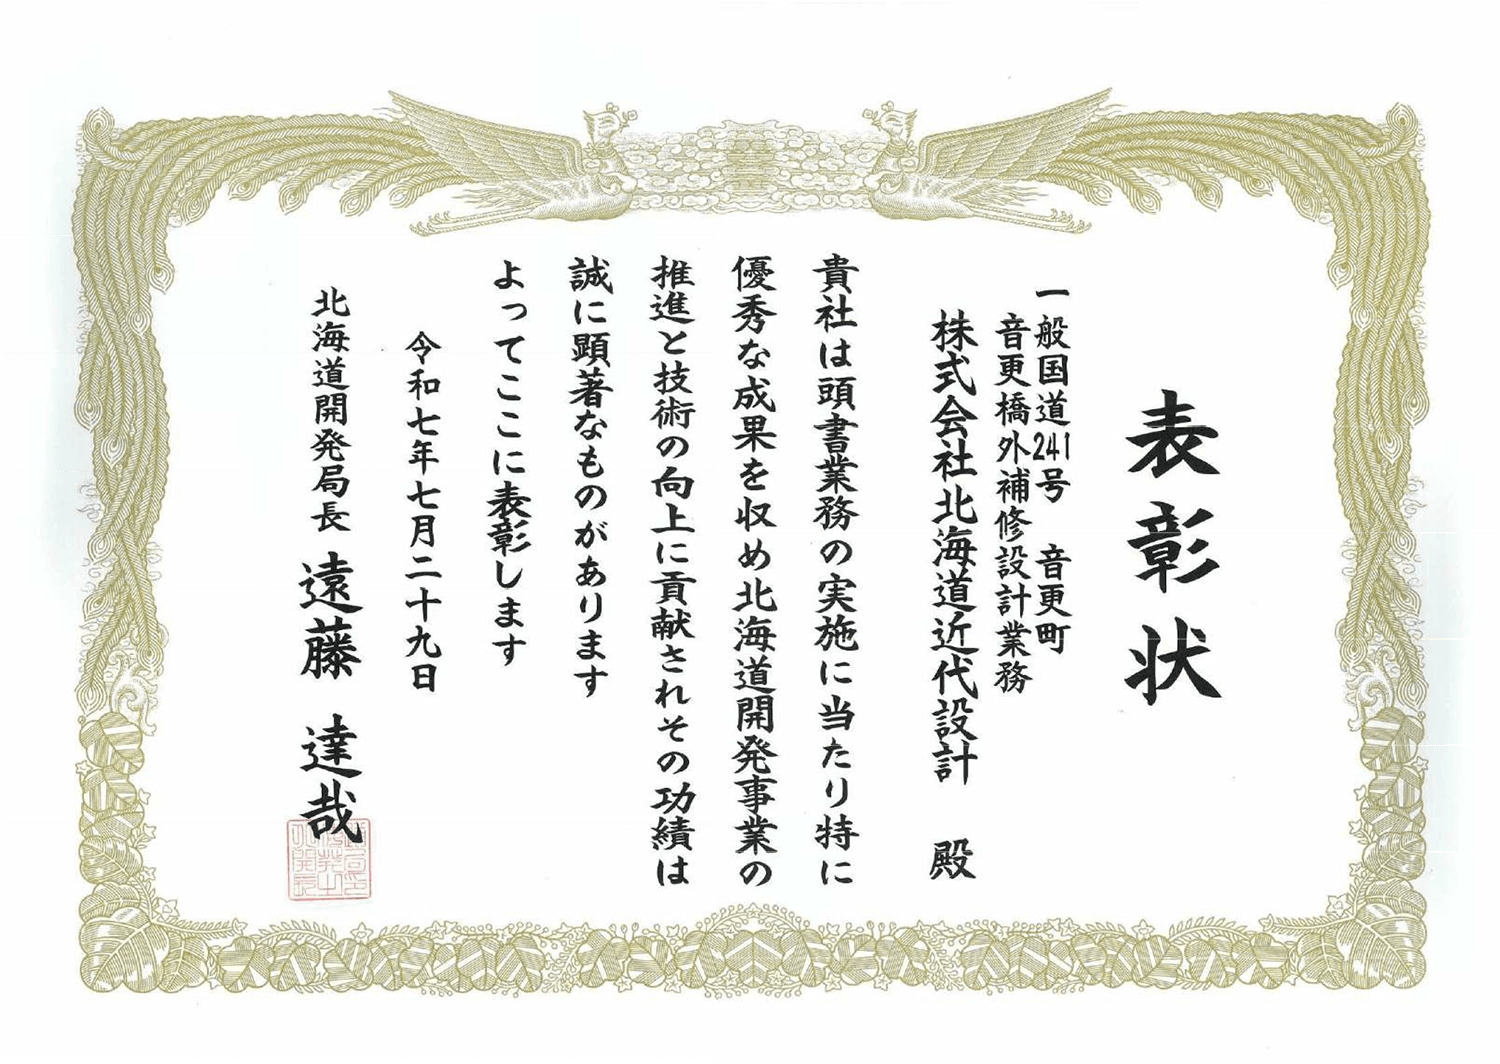 表彰状
一般国道241号　音更町
音更橋外補修設計業務
株式会社北海道近代設計　殿
貴社は頭書業務の実施に当たり特に
優秀な成果を収め北海道開発事業の
推進と技術の向上に貢献されその功績は
誠に顕著なものがあります
よってここに表彰します
令和七年七月二十九日
北海道開発局長　遠藤　達哉